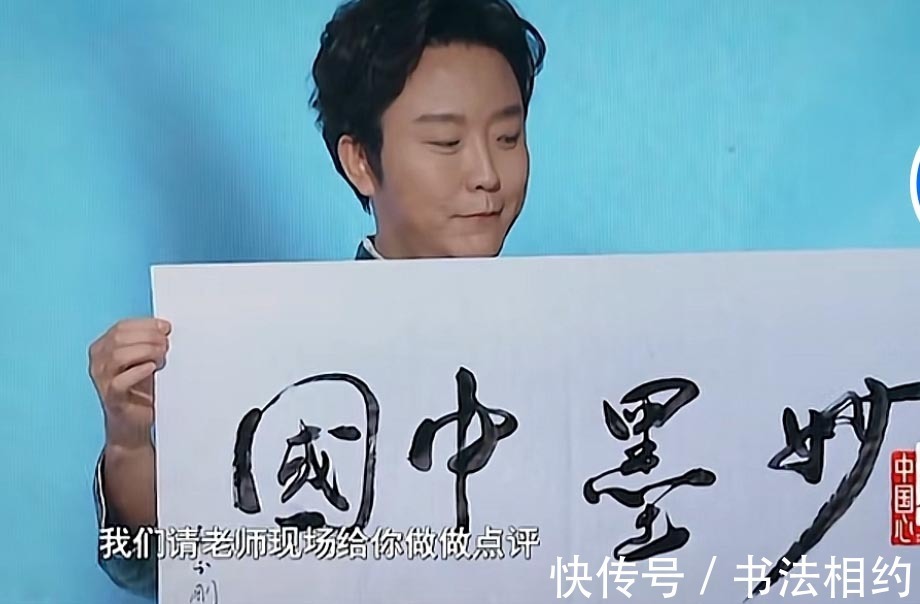 妙墨中國
中国心
我们请老师现场给你做做点评
快传号 / 书法相约